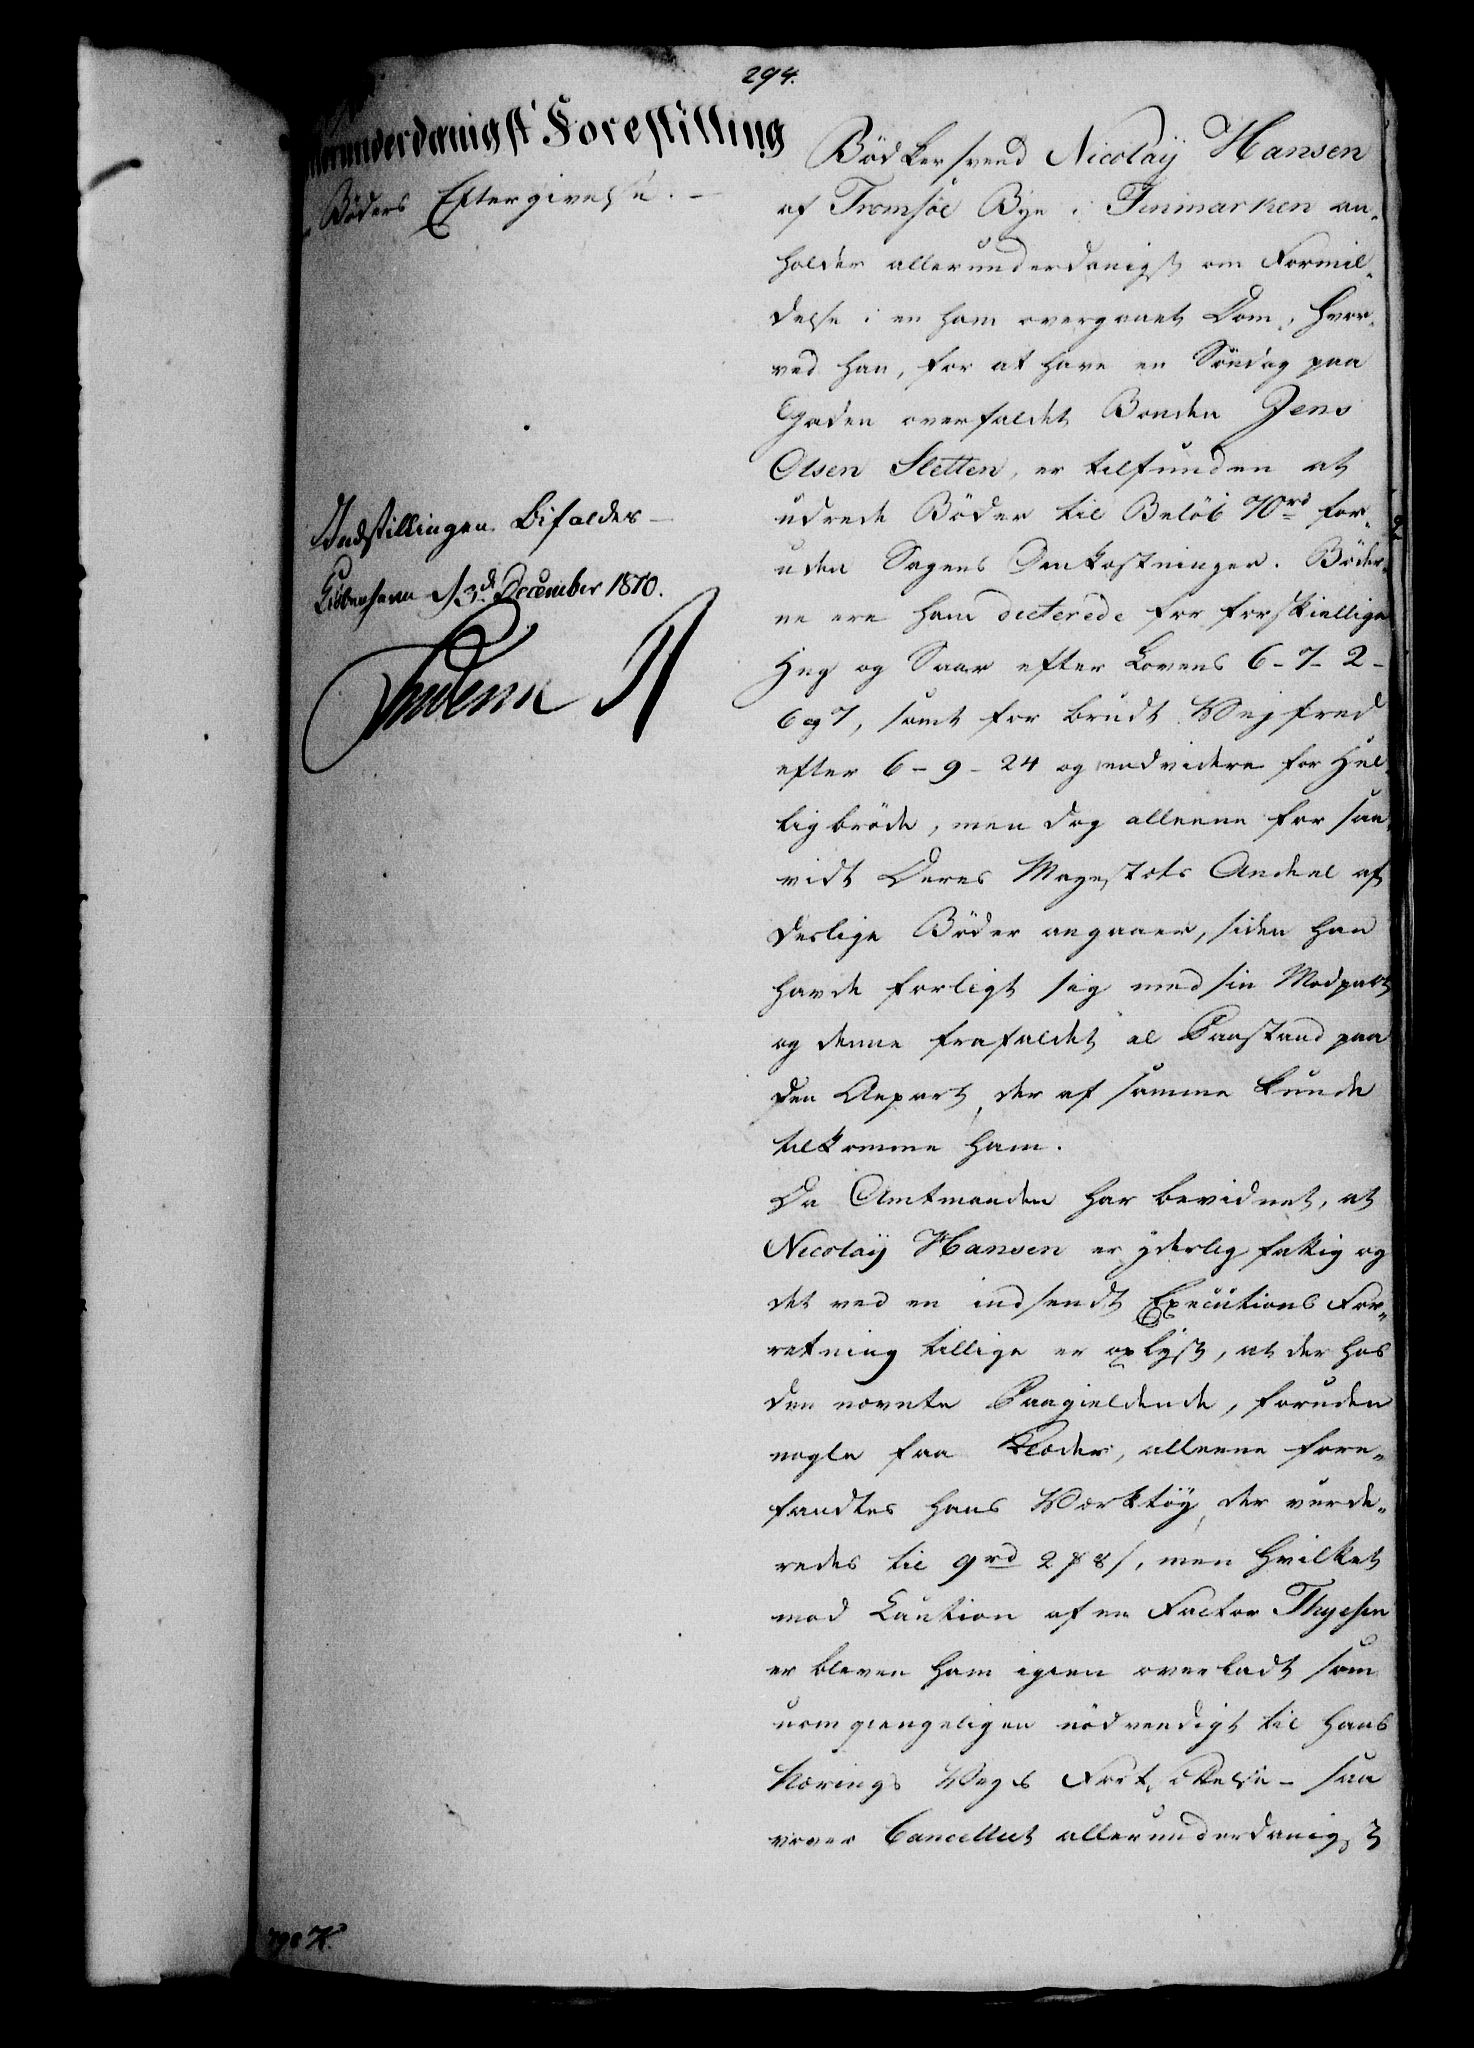 294.
Allerunderdanigst Forestilling
Bøders Eftergivelse. –
Indstillingen bifaldes –
Kiøbenhavn d 3.d December 1810.
Frederik R
Bødkersvend Nicolaÿ Hansen
af Tromsøe Bye i Finmarken an„
holder allerunderdanigst om Formil„
delse i en ham overgaaet Dom, hvor„
ved han, for at have en Søndag paa
Gaden overfaldet Bonden Jens
Olsen Sletten, er tilfunden at
udrede Bøder til Beløb 70rd for„
uden Sagens Omkostninger. Bøder„
ne ere ham dicterede for forskiellige
Hug og Saar efter Lovens 6-7-2-
6 og 7, samt for brudt Vejfred
efter 6-9-24 og endvidere for Hel„
ligbrøde, men dog alleene for saa„
vidt Deres Majestæts Andeel af
deslige Bøder angaaer, siden han
havde forligt sig med sin Modpart
og denne frafaldet al Paastand paa
den Anpart, der af samme kunde
tilkomme ham.
Da Amtmanden har bevidnet, at
Nicolaÿ Hansen er yderlig fattig og
det ved en indsendt Executions For„
retning tillige er oplyst, at der hos
den nævnte Paagieldende, foruden
nogle faa Klæder, alleene fore„
fandtes hans Værktøy, der vurde„
redes til 9rd 2 ꝳ 8 s, men hvilket
mod Caution af en Factor Thyesen
er bleven ham igien overladt som
uomgiengeligen nødvendigt til hans
Nærings Veys Fortsættelse – saa
vover Cancelliet allerunderdanigst